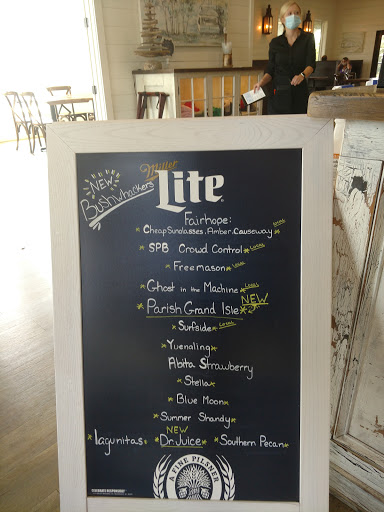 NEW
Bushwhackers
Miller
Lite
Fairhope:
*Cheap Sunglasses. Amber. Causeway*
SPB Crowd Control* Local
*Freemason* Local
*Ghost in the Machine* Local
*Parish Grand Isle* NEW
*Surfside* Local
*Yuenaling*
Abita Strawberry
*Stella*
*Blue Moon*
*Summer Shandy*
NEW
*Lagunitas* *Dr. Juice* *Southern Pecan*
A FINE PILSNER